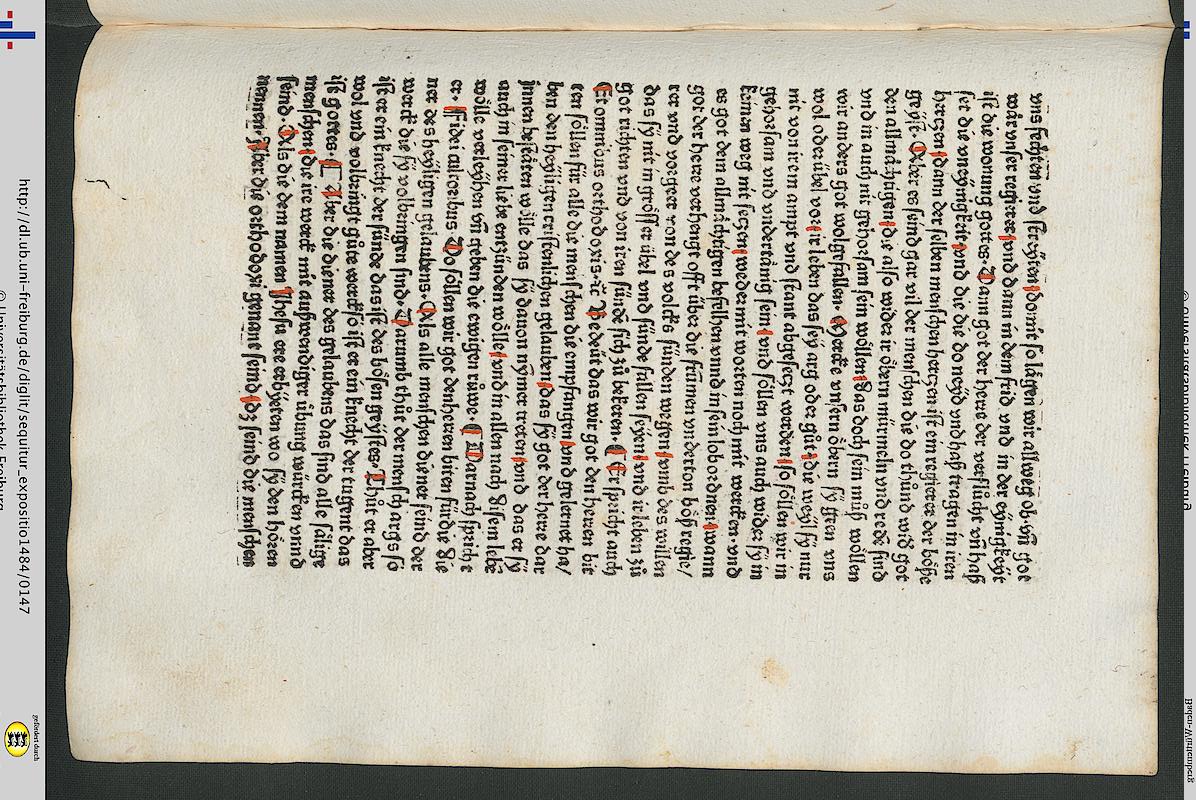 vns fechten vnd streyten / do mit so lägen wir allweg ob vñ got
wär vnser regierer / vnd dann in dem frid vnd in der eynigkeyt
ist die wonung gottes. Dann got der herre der verflücht vñ haß
set die vneynigkeit / vnd die die do neyd vnd haß tragen in iren
herczen / dann der selben menschen herczen ist ein regierer der böße
geyst. Aber es seind gar vil der menschen die do thůnd wid got
den allmächtigen / die also wider ir öbern mürmeln vnd rede sind
vnd in auch nit gehorsam sein wöllen / das doch sein můß wöllen
wir anders got wolgefallen. Mercke vnsern öbern sy geen vns
wol oder übel vor / ir leben das sey arg oder gůt / die weyl sy nur
nit von irem ampt vnd stant abgeseczt werden / so söllen wir in
gehorsam vnd vndertänig sein / vnd söllen vns auch wider sy in
keinen weg nit seczen / weder mit worten noch mit wercken. vnd
es got dem allmächtigen befelhen vnnd in sein lob ordnen / wann
got der herre verhengt offt über die frümen vnderton böß regie/
rer vnd vorgeer von des volcks sünden wegen / vmb des willen
das sy nit in grösser übel vnd sünde fallen seyen / vnd ir leben zů
got richten vnd von iren sünde sich zů bekeren. ¶ Er spricht auch
Et omnibus orthodoxis. ⁊c̃ Bedeüt das wir got den herren bit
ten söllen für alle die menschen die empfangen / vnd gelernet ha/
ben den heyligen cristenlichen gelauben / das sy got der herre dar
jnnen bestäten wölle das sy dauon nymer treten / vnd das er sy
auch in seiner liebe entzünden wölle / vnd in allen nach disem lebē
wölle verleyhen vñ geben die ewigen růwe. ¶ Darnach spricht
er. Fidei cultoribus. Do söllen wir got den herren biten für die die
ner des heyligen gelaubens. Als alle menschen diener seind der
werck die sy volbringen sind. Darumb thůt der mensch args so
ist er ein knecht der sünde das ist des bösen geystes. Thůt er aber
wol vnd volbringt gůte werck so ist er ein knecht der tugent das
ist gottes. ¶ Aber die diener des gelaubens das sind alle sälige
menschen / die ire werck mit außwendiger übung würcken vnnd
seind. Als die dem namen Jhesu ere erbyeten wo sy den hören
nennen. Aber die orthodoxi genant seind / dz seind die menschen
http://dl.ub.uni-freiburg.de/diglit/sequitur_expositio1484/0147
© Universitätsbibliothek Freiburg
gefördert durch